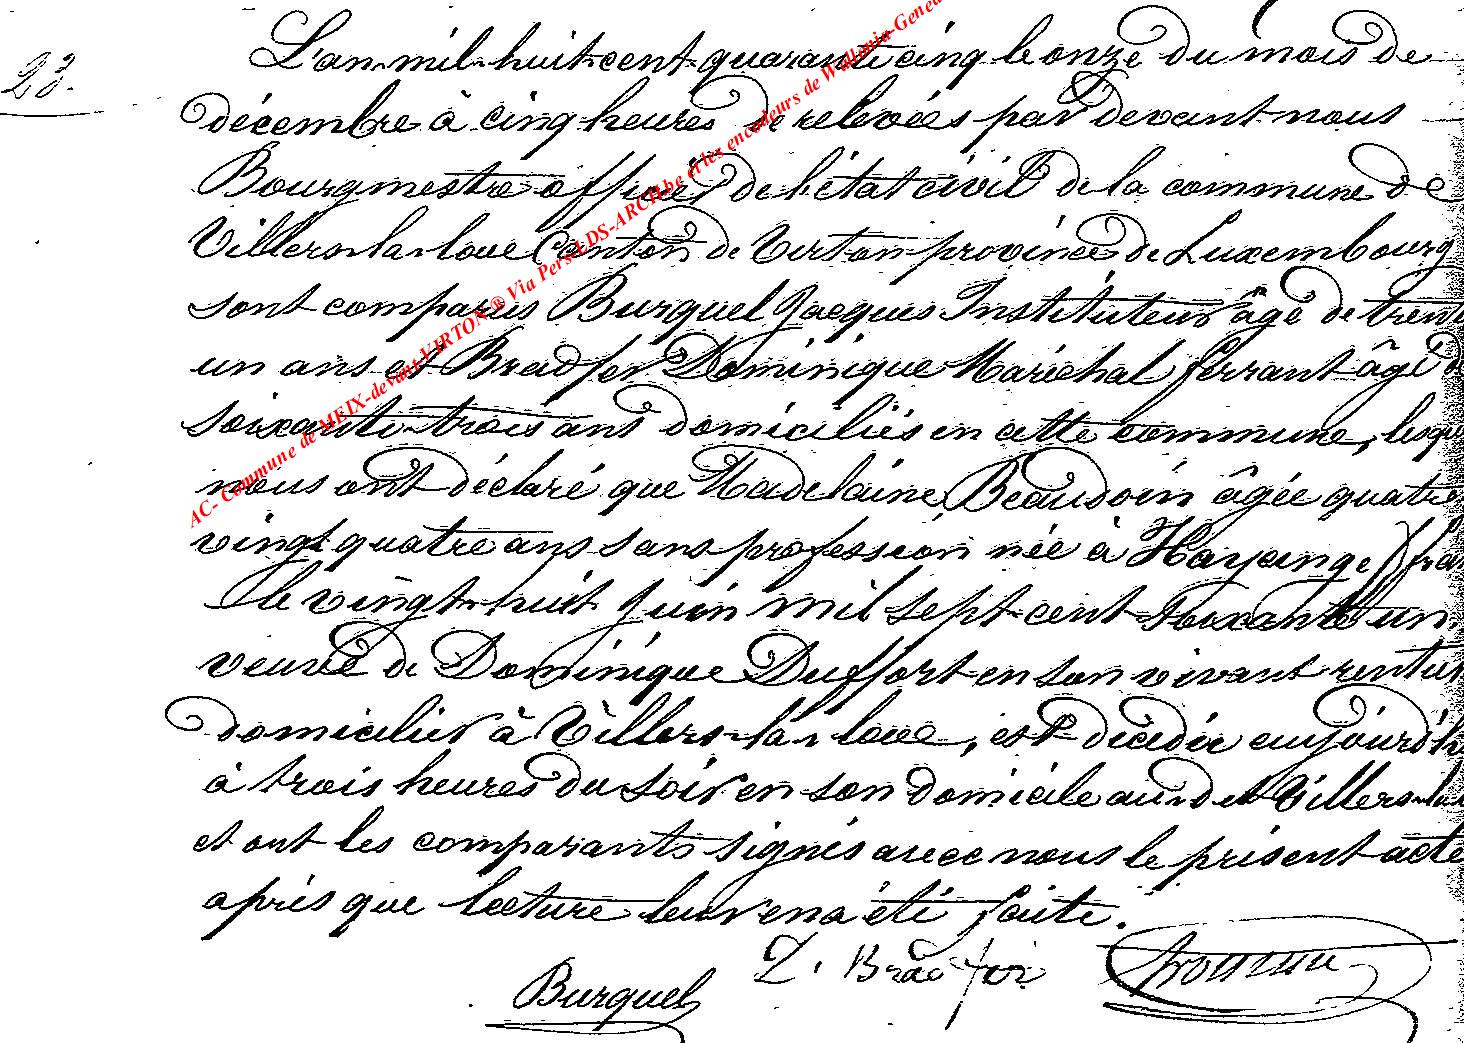 23.
L'an mil huit cent quarante cinq le onze du mois de
décembre à cinq heures de relevées par devant nous
Bourgmestre officier de l'état civil de la commune de
Villers-la-loue Canton de Virton province de Luxembourg
sont comparus Burquel Jacques Instituteur âgé de trente
un ans et Bradfer Dominique Maréchal ferrant âgé d
soixante-trois ans domiciliés en cette commune, lesqu
nous ont déclaré que Madelaine Beaudoin âgée quatre
vingt quatre ans sans profession née à Hayange (fra
le vingt-huit Juin mil sept cent soixante un,
veuve de Dominique Duffort en son vivant rentier
domicilier à Villers-la-loue, est décédée aujourd'h
à trois heures du soir en son domicile au-dit Villers-la
et ont les comparants signés avec nous le présent acte
après que lecture leur en a été faite.
Burquel
AC- Commune de MEIX-devant-VIRTON® Via Pers-LDS-ARCH.be et les encodeurs de Wallonia-Genea